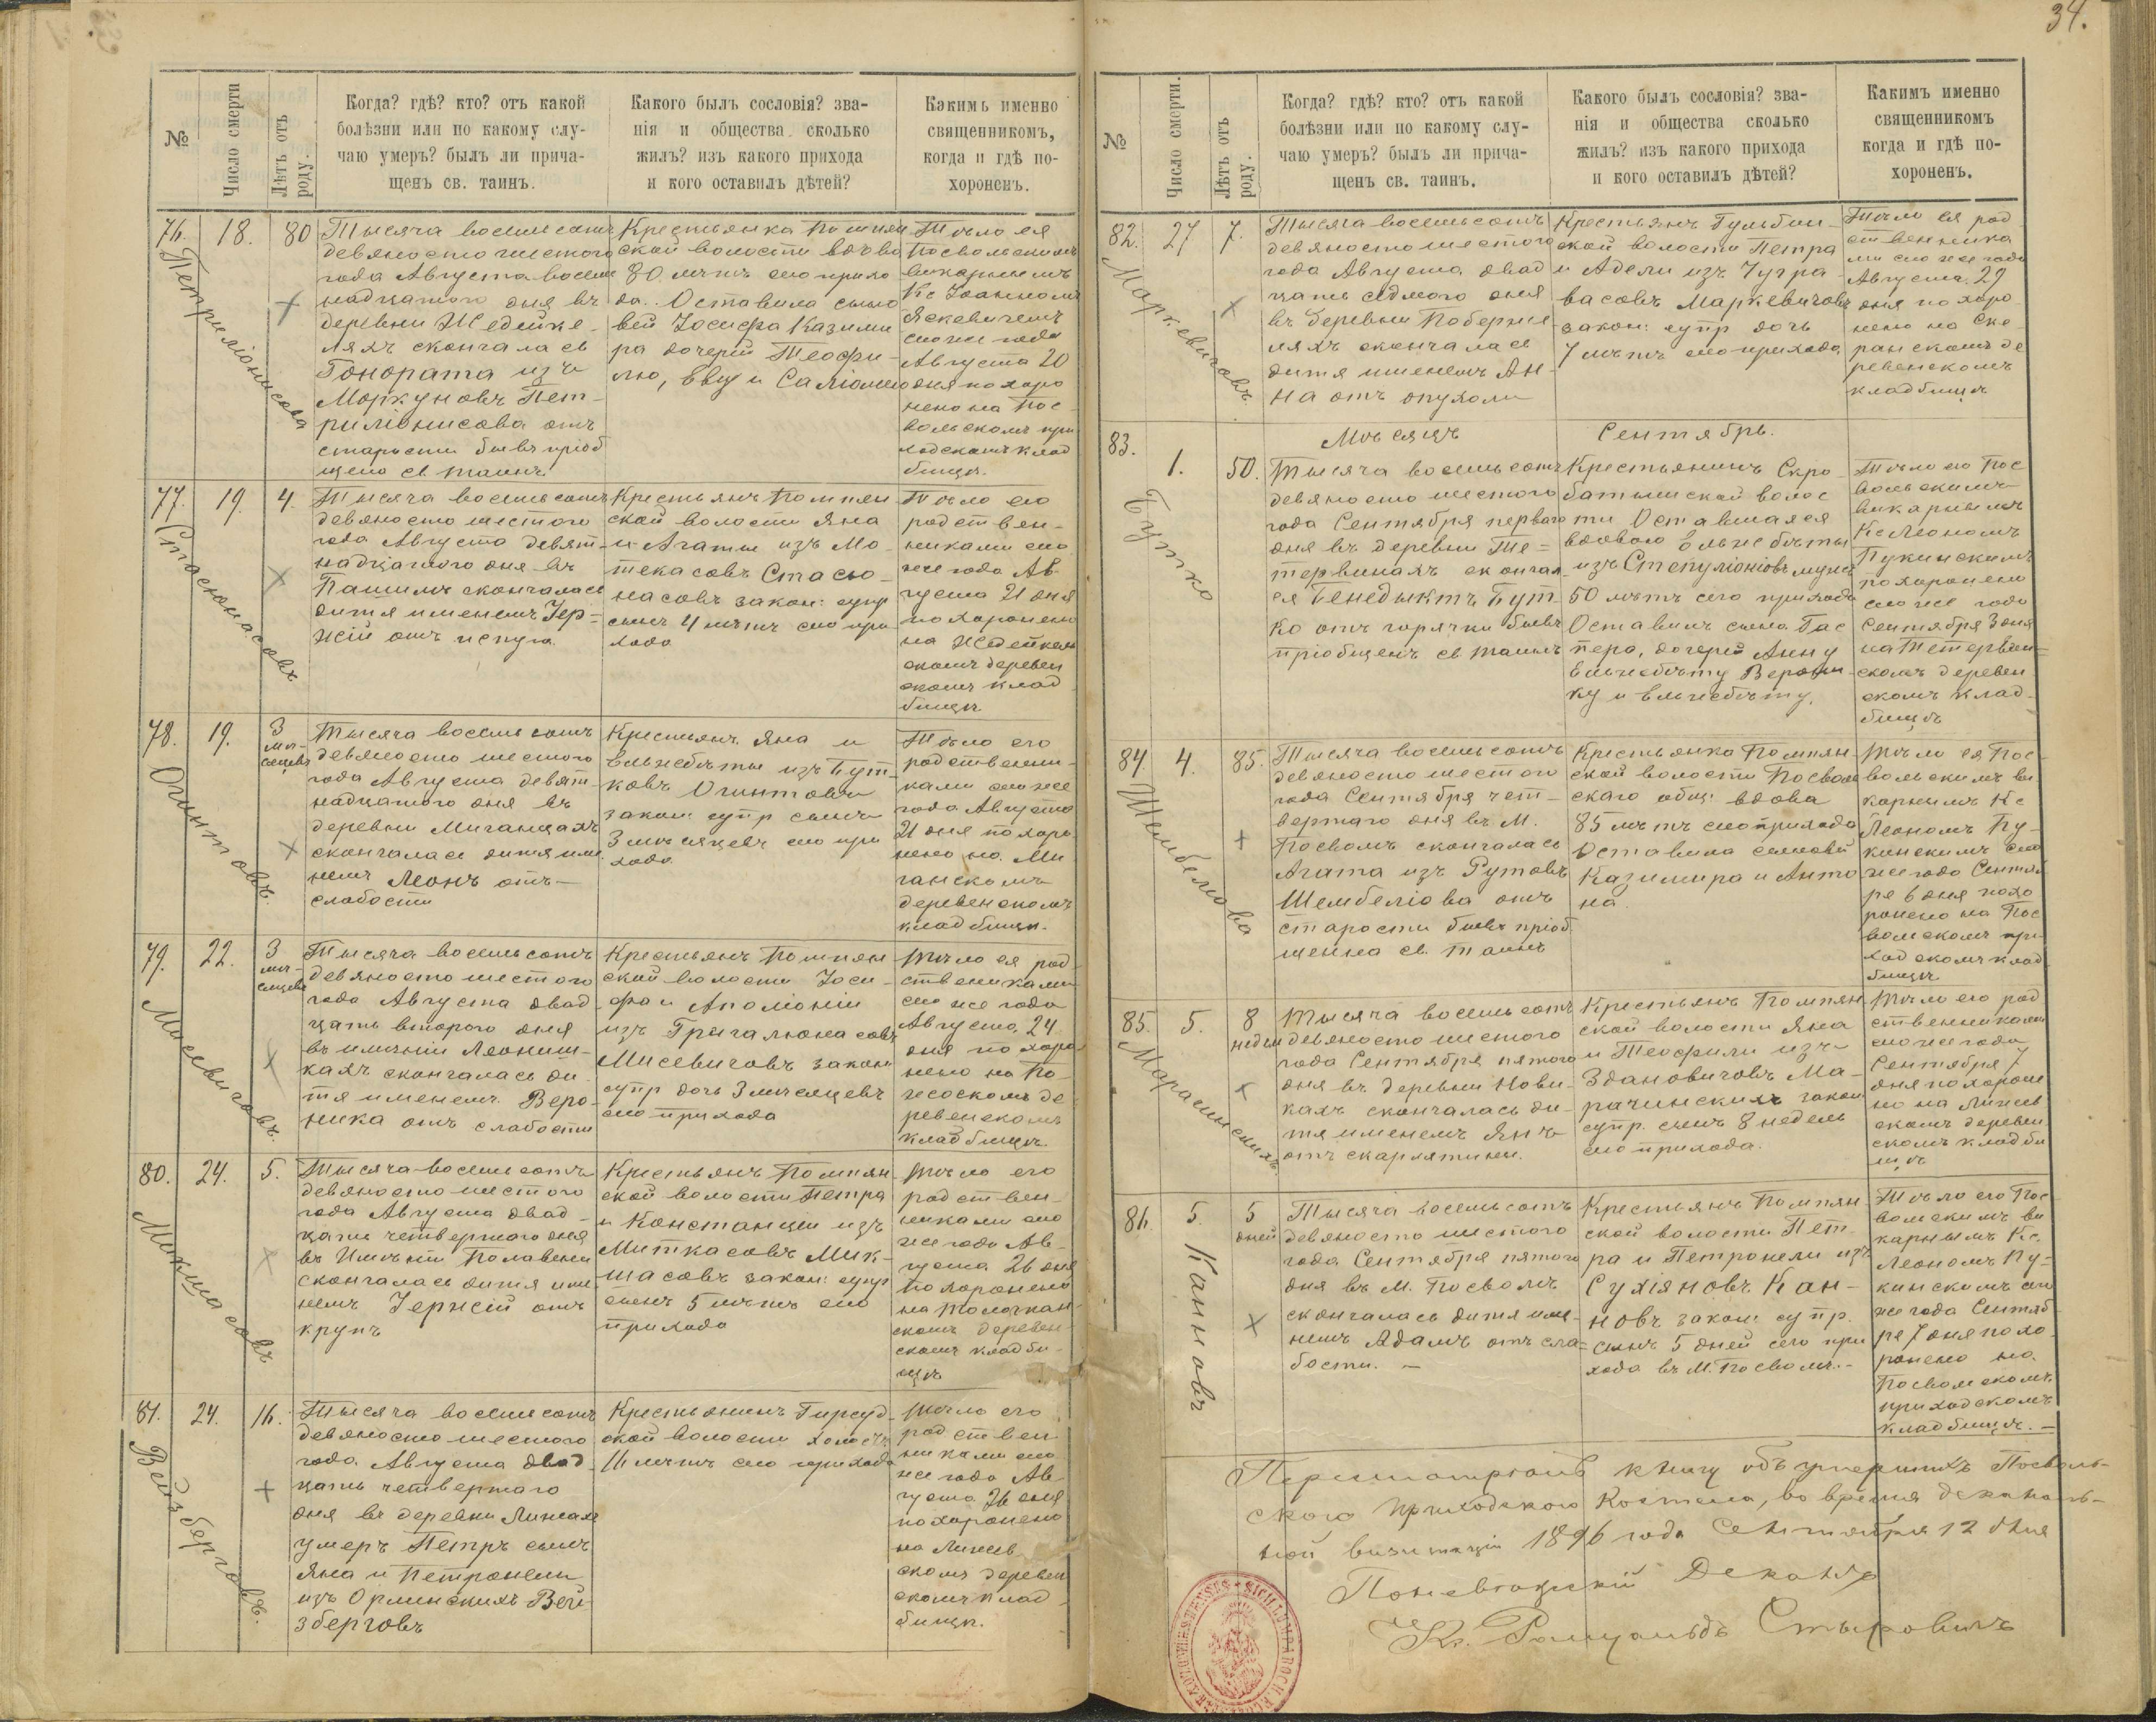 34.
№
Число смерти
Лѣтъ отъ роду.
Когда? гдѣ? кто? отъ какой
болѣзни или по какому слу-
чаю умеръ? былъ ли прича-
щенъ св. таинъ.
Какого былъ сословія? зва-
нія и общества сколько
жилъ? изъ какого прихода
и кого оставилъ дѣтей?
Какимъ именно
священникомъ,
когда и гдѣ по-
хороненъ.
76.
18.
80
Петриліонисова
Тысяча восемьсотъ
девяносто шестого
года Августа восем
надцатого дня въ
деревни Жедейке-
ляхъ скончалась
Гонората изъ
Моркуновъ Пет-
риліонисова отъ
старости бывъ пріоб
щено св. таинъ.
Крестьянка Помпян
ской волости вдова
80 лѣтъ сего прихо
да. Оставила сыно
вей Іосифа Казими
ра дочерей Теофи-
лю, Еву и Саломею
Тѣло ея
Посвольскимъ
викарнымъ
Кс Іоанномъ
Яскевичемъ
сего же года
Августа 20
дня похоро
нено на Пос-
вольскомъ при
ходскомъ клад
бищѣ.
77.
19.
4.
Стасюнасовъ
Тысяча восемьсотъ
девяносто шестого
года Августа девят-
надцатого дня въ
скончалась
дитя именемъ Іер-
жій отъ испуга
Крестьянъ Помпян
ской волости Яна
и Агаты изъ Мо-
текасовъ Стасю-
насовъ закон: супр
сынъ 4 лѣтъ сего при
хода
Тѣло его
родствен-
никами сего
же года Ав-
густа 21 дня
похоронено
на Жедейкель
скомъ деревен
скомъ клад
бищѣ
78.
19.
3
мѣ-
сяцевъ
Огинтовъ.
Тысяча восемьсотъ
девяносто шестого
года Августа девят-
надцатого дня въ
деревни Миганцахъ
скончалась дитя име
немъ Леонъ отъ
слабости
Крестьянъ Яна и
Ельжбѣты изъ Бут-
ковъ Огинтовъ
закон: супр сынъ
3 мѣсяцевъ сего при
хода
Тѣло его
родственни-
ками сего же
года Августа
21 дня похоро
нено на Ми
ганскомъ
деревенскомъ
кладбищѣ.
79.
22.
3
мѣ-
сяцевъ
Мисевичовъ.
Тысяча восемьсотъ
девяносто шестого
года Августа двад
цать второго дня
въ имѣніи Леониш-
кахъ скончалась ди
тя именемъ Веро-
ника отъ слабости
Крестьянъ Помпян
ской волости Іоси-
фа и Аполіоніи
изъ Григалюнасовъ
Мисевичовъ закон
супр дочь 3 мѣсяцевъ
сего прихода
Тѣло ея род
ственниками
сего же года
Августа 24
дня похоро
нено на По-
жоскомъ де
ревенскомъ
кладбищѣ.
80.
24.
5.
Микшасовъ
Тысяча восемьсотъ
девяносто шестого
года Августа двад-
цать четвертого дня
въ Имѣніи Полавени
скончалась дитя име
немъ Іержій отъ
крупъ
Крестьянъ Помпян
ской волости Петра
и Констанціи изъ
Миткасовъ Мик-
шасовъ закон: супр
сынъ 5 лѣтъ сего
прихода
Тѣло его
родствен-
никами сего
же года Ав-
густа 26 дня
похоронено
на Толочкан-
скомъ деревен-
скомъ кладби-
щѣ
81.
24.
16.
Вейзберговъ.
Тысяча восемьсотъ
девяносто шестого
года Августа двад-
цать четвертаго
дня въ деревни Линкаве
умеръ Петръ сынъ
Яна и Петронели
изъ Орлинскихъ Вей-
зберговъ
Крестьянинъ Гирсуд-
ской волости холостъ
16 лѣтъ сего прихода
Тѣло его
родствен
никами сего
же года Ав
густа 26 дня
похоронено
на Линкев
скомъ деревен
скомъ клад
бищѣ.
№
Число смерти.
Лѣтъ отъ роду.
Когда? гдѣ? кто? отъ какой
болѣзни или по какому слу-
чаю умеръ? былъ ли прича-
щенъ св. таинъ.
Какого былъ сословія? зва-
нія и общества сколько
жилъ? изъ какого прихода
и кого оставилъ дѣтей?
Какимъ именно
священникомъ
когда и гдѣ по-
хороненъ.
82.
27
7.
Маркевичовъ.
Тысяча восемьсотъ
девяносто шестого
года Августа двад
цать седмого дня
въ деревни Побержe-
ляхъ скончалась
дитя именемъ Ан-
на отъ опухоли
Крестьянъ Гульбин-
ской волости Петра
и Адели изъ Чугра-
васовъ Маркевичовъ
закон: супр дочь
7 лѣтъ сего прихода
Тѣло ея род
ственника
ми сего же года
Августа 29
дня похоро
нено на Ске-
ранскомъ де
ревенскомъ
кладбищѣ
Мѣсяцъ Сентябрь.
83.
1.
50.
Бутко
Тысяча восемьсотъ
девяносто шестого
года Сентября перваго
дня въ деревни Те-
тервинахъ скончал-
ся Бенедыктъ Бут
ко отъ горячки бывъ
пріобщенъ св. таинъ
Крестьянинъ Скро-
батышской волос
ти Оставшаяся
вдовою Ельжбѣты
изъ Степуліоновъ мужъ
50 лѣтъ сего прихода
Оставилъ сына Гас
пера, дочерей Анну
Ельжбѣту Верони
ку и Ельжебѣту.
Тѣло его Пос
вольскимъ
викарнымъ
Кс Леономъ
Пукинскимъ
похоронено
сего же года
Сентября 3 дня
на Тетервин-
скомъ деревен
скомъ клад-
бищѣ
84.
4.
85.
Шембеліова
Тысяча восемьсотъ
девяносто шестого
года Сентября чет-
вертаго дня въ М.
Посволѣ скончалась
Агата изъ Рутовъ
Шембеліова отъ
старости бывъ пріоб
щенна св. таинъ
Крестьянка Помпян-
ской волости Посволь
скаго общ: вдова
85 лѣтъ сего прихода
Оставила сыновей
Казимира и Анто
на.
Тѣло ея Пос-
вольскимъ ви
карнымъ Кс
Леономъ Пу-
кинскимъ сего
же года Сентяб
ря 6 дня похо
ронено на Пос
вольскомъ при-
ходскомъ клад
бищѣ
85.
5.
8
недѣл
Марашинскихъ
Тысяча восемьсотъ
девяносто шестого
года Сентября пятого
дня въ деревни Нови-
кахъ скончалась ди-
тя именемъ Янъ
отъ скарлятины.
Крестьянъ Помпян
ской волости Яна
и Теофили изъ
Здановичовъ Ма-
рачинскихъ закон
супр. сынъ 8 недель
сего прихода.
Тѣло его род
ственниками
сего же года
Сентября 7
дня похороне
но на Линкев
скомъ деревен
скомъ кладби
щѣ
86.
5.
5
дней
Канновъ
Тысяча восемьсотъ
девяносто шестого
года Сентября пятого
дня въ М. Посволѣ
скончалась дитя име-
немъ Адамъ отъ сла-
бости. —
Крестьянъ Помпян
ской волости Пет-
ра и Петронели изъ
Сухіяновъ Кан-
новъ закон: супр.
сынъ 5 дней сего при
хода въ М. Посволѣ.-
Тѣло его Пос
вольскимъ ви
карнымъ Кс.
Леономъ Пу-
кинскимъ сего
же года Сентяб
ря 7 дня похо
ронено на
Посвольскомъ
приходскомъ
кладбищѣ. —
Пересмотрѣлъ книгу объ умершихъ Посволь-
ского приходского Костела, во время деканаль-
ной визитаціи 1896 года Сентября 12 дня
Поневѣжскій Деканъ
Кс. Ромуальдъ Стыровичъ